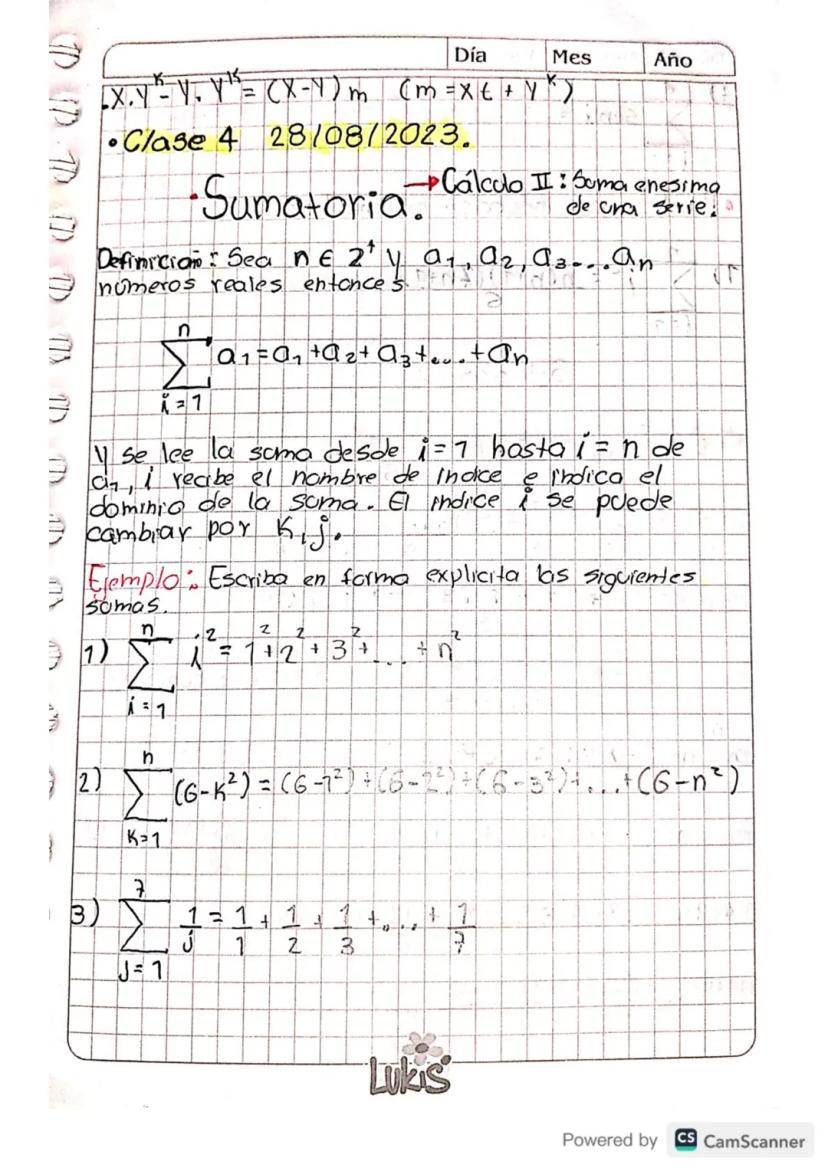 Día Mes Año
.X.Y^K - Y.Y^K = (X-Y)m (m = Xt + Y^K)
• Clase 4 28/08/2023.
• Sumatoria. → Cálculo II: Suma enesima
de una serie.
Definición: Sea n ∈ Z⁺ y a₁, a₂, a₃... aₙ
números reales entonces
n
∑ a₁ = a₁ + a₂ + a₃ + ... + aₙ
i = 1
Y se lee la suma desde i = 1 hasta i = n de
a₁, i recibe el nombre de índice e indica el
dominio de la suma. El índice i se puede
cambiar por K, j.
Ejemplo: Escriba en forma explicita las siguientes
sumas.
n
1) ∑ i² = 1² + 2² + 3² + ... + n²
i = 1
n
2) ∑ (6-K²) = (6-1²) + (6-2²) + (6-3²) + ... + (6-n²)
K=1
7
3) ∑ 1/j = 1/1 + 1/2 + 1/3 + ... + 1/7
J = 1
Lukis
Powered by CS CamScanner